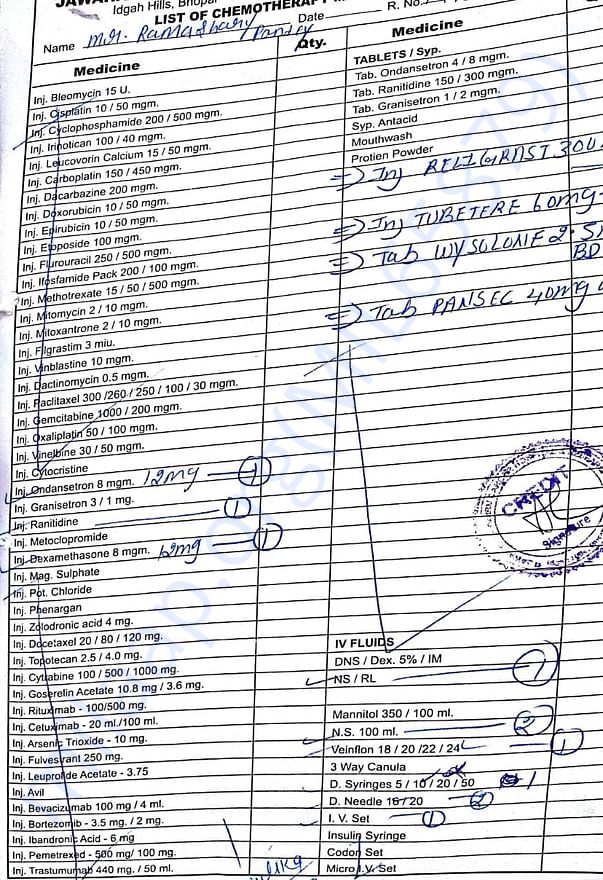 Idgah Hills, Bhopal
LIST OF CHEMOTHERAPY
Date
R. No.
Name Mr. Ramashary Pandey
Medicine
Qty.
Inj. Bleomycin 15 U.
Inj. Cisplatin 10 / 50 mgm.
Inj. Cyclophosphamide 200 / 500 mgm.
Inj. Irinotican 100 / 40 mgm.
Inj. Leucovorin Calcium 15 / 50 mgm.
Inj. Carboplatin 150 / 450 mgm.
Inj. Dacarbazine 200 mgm.
Inj. Doxorubicin 10 / 50 mgm.
Inj. Epirubicin 10 / 50 mgm.
Inj. Etoposide 100 mgm.
Inj. Flurouracil 250 / 500 mgm.
Inj. Ifosfamide Pack 200 / 100 mgm.
Inj. Methotrexate 15 / 50 / 500 mgm.
Inj. Mitomycin 2 / 10 mgm.
Inj. Mitoxantrone 2 / 10 mgm.
Inj. Filgrastim 3 miu.
Inj. Vinblastine 10 mgm.
Inj. Daclinomycin 0.5 mgm.
Inj. Paclitaxel 300 /260 / 250 / 100 / 30 mgm.
Inj. Gemcitabine 1000 / 200 mgm.
Inj. Oxaliplatin 50 / 100 mgm.
Inj. Vinelbine 30 / 50 mgm.
Inj. Cytocristine
Inj. Ondansetron 8 mgm. 12mg 1
Inj. Granisetron 3 / 1 mg.
Inj. Ranitidine 1
Inj. Metoclopromide
Inj. Dexamethasone 8 mgm. 12mg 1
Inj. Mag. Sulphate
Inj. Pot. Chloride
Inj. Phenargan
Inj. Zolodronic acid 4 mg.
Inj. Docetaxel 20 / 80 / 120 mg.
Inj. Topotecan 2.5 / 4.0 mg.
Inj. Cytrabine 100 / 500 / 1000 mg.
Inj. Goserelin Acetate 10.8 mg / 3.6 mg.
Inj. Rituximab - 100/500 mg.
Inj. Cetuximab - 20 ml./100 ml.
Inj. Arsenic Trioxide - 10 mg.
Inj. Fulvestrant 250 mg.
Inj. Leuprolide Acetate - 3.75
Inj. Avil
Inj. Bevacizumab 100 mg / 4 ml.
Inj. Bortezomib - 3.5 mg. / 2 mg.
Inj. Ibandronic Acid - 6 mg
Inj. Pemetrexed - 500 mg/ 100 mg.
Inj. Trastumumab 440 mg. / 50 ml.
Medicine
TABLETS / Syp.
Tab. Ondansetron 4 / 8 mgm.
Tab. Ranitidine 150 / 300 mgm.
Tab. Granisetron 1 / 2 mgm.
Syp. Antacid
Mouthwash
Protien Powder
⇒ Inj RELIGRAST 300
⇒ Inj TUBETERE 60mg
⇒ Tab WYSOLONE 2.5
BD
⇒ Tab PANSEC 40mg
CREDIT
Signature
IV FLUIDS
DNS / Dex. 5% / IM
NS / RL 1
Mannitol 350 / 100 ml.
N.S. 100 ml. 2
Veinflon 18 / 20 /22 / 24 1
3 Way Canula
D. Syringes 5 / 10 / 20 / 50 1
D. Needle 18/ 20 2
I. V. Set 1
Insulin Syringe
Codon Set
Micro I.V. Set